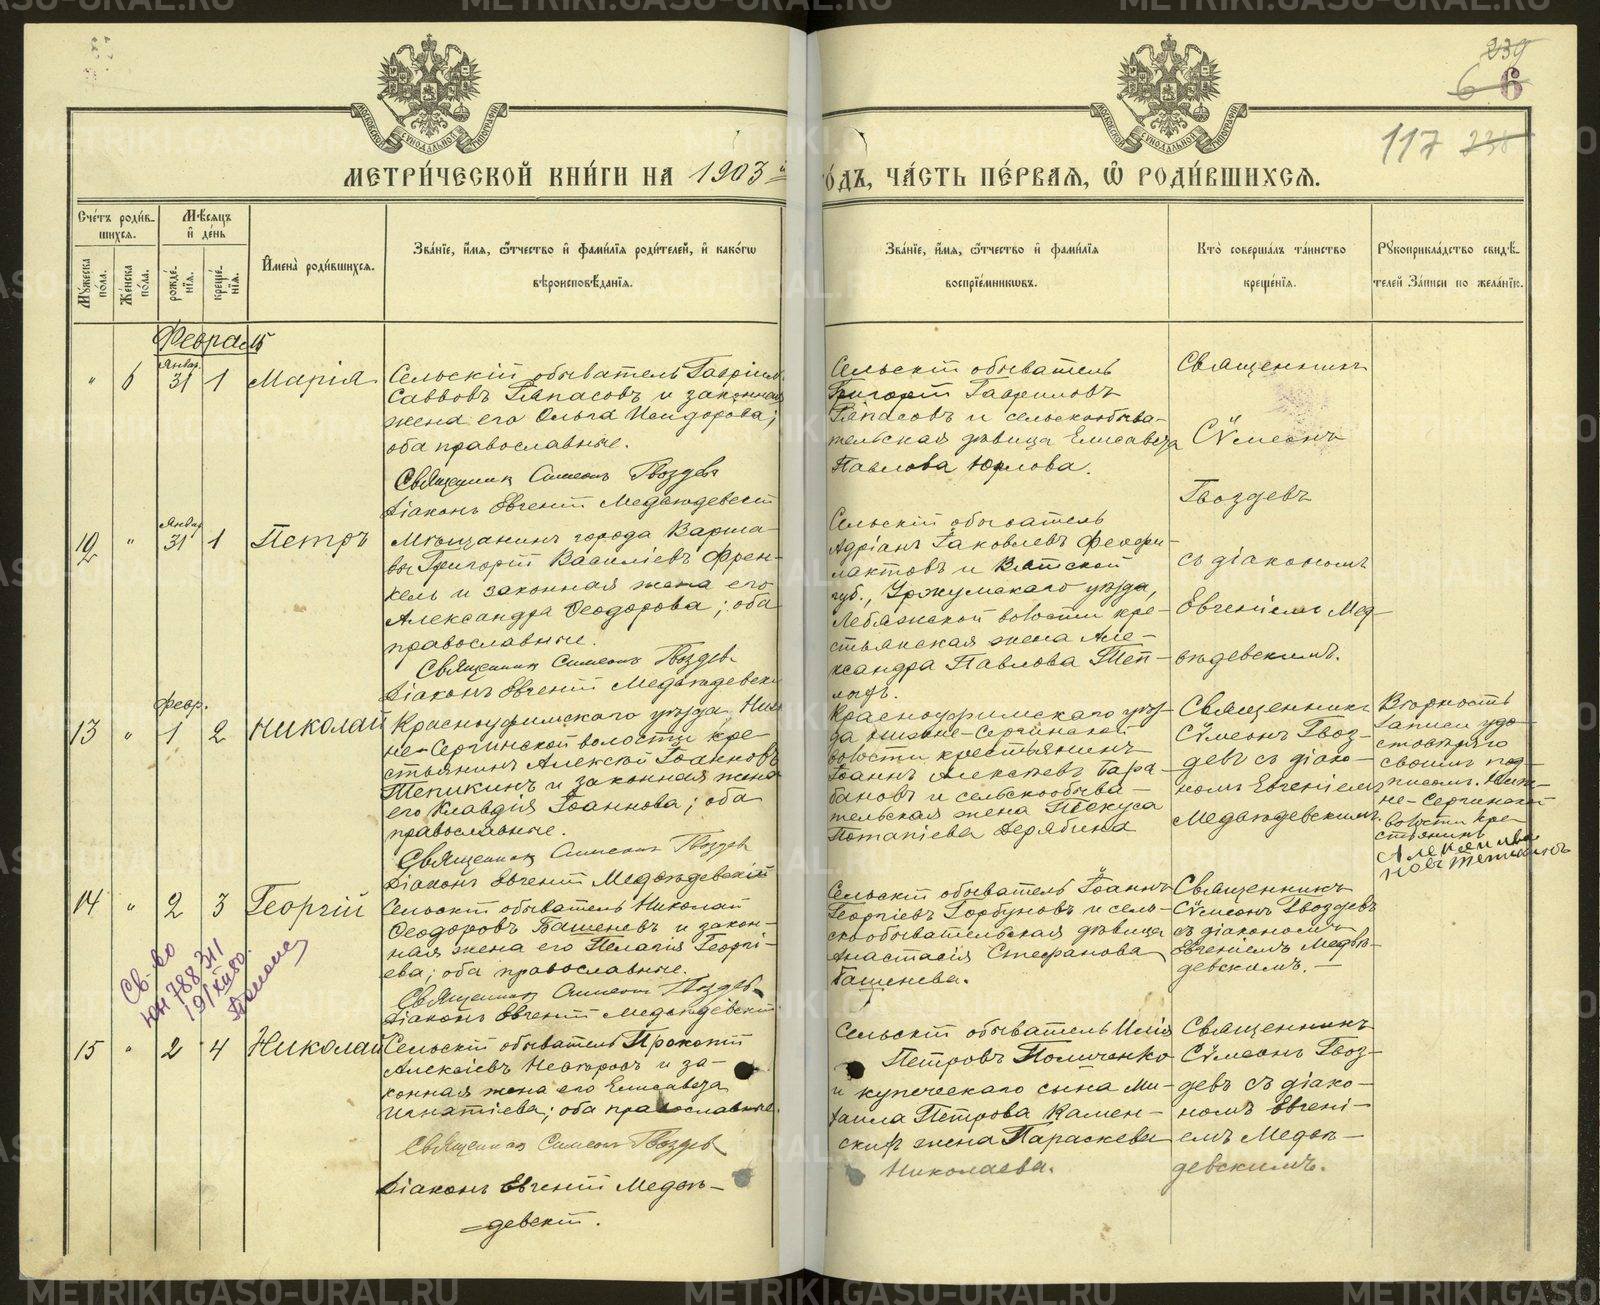 МЕТРИ́ЧЕСКОЙ КНИ́ГИ НА 1903 й
ГО́ДЪ, ЧА́СТЬ ПЕ́РВАЯ, Ѡ РОДИ́ВШИХСЯ.
239
6 6
117 238
МОСКОВСКОЙ СѴНОДАЛЬНОЙ ТИПОГРАФІИ
МОСКОВСКОЙ СѴНОДАЛЬНОЙ ТИПОГРАФІИ
Сче́тъ роди́вшихся.
Мꙋ́жеска по́ла.
Же́нска по́ла.
Мѣ́сяцъ и де́нь
рожде́нїѧ.
креще́нїѧ.
И҆мена̀ роди́вшихся.
Зва́нїе, и҆́мя, ѻ҆́тчество и҆ фами́лїя роди́телей, и҆ како́гѡ
вѣроисповѣ́данїя.
Зва́нїе, и҆́мя, ѻ҆́тчество и҆ фами́лїя
воспрїе́мникѡвъ.
Кто̀ соверша́лъ та́инство
креще́нїя.
Рꙋкоприкла́дство свидѣ́телей за́писи по жела́нїю.
Февраль
" 6 Январ. 31 1 Марія
Сельскій обыватель Гавріилъ
Саввовъ Папасовъ и законная
жена его Ольга Исидорова;
оба православные.
Священник Симеонъ Гвоздев
Діаконъ Евгеній Медвѣдевскій
Сельскій обыватель
Григорій Гавриловъ
Папасовъ и сельскообыва-
тельская дѣвица Елисавета
Павлова Юрлова.
Священникъ
Сѵмеонъ
Гвоздевъ
съ діакономъ
Евгеніемъ Мед-
вѣдевскимъ.
12 " Январ 31 1 Петръ
Мѣщанинъ города Варша-
вы Григорій Василіевъ Френ-
кель и законная жена его
Александра Ѳеодорова; оба
православные.
Священник Симеонъ Гвоздев
Діаконъ Евгеній Медвѣдевски
Сельскій обыватель
Адріанъ Іаковлевъ Феофи-
лактовъ и Вятской
губ., Уржумскаго уѣзда,
Лебяжской волости кре-
стьянская жена Але-
ксандра Павлова Теп-
лыхъ.
13 " Февр. 1 2 Николай
Красноуфимскаго уѣзда, Ниж
не-Сергинской волости кре-
стьянинъ Алексій Іоанновъ
Тепикинъ и законная жена
его Клавдія Іоаннова; оба
православные.
Священник Симеонъ Гвоздев
Діаконъ Евгеній Медвѣдевскій
Красноуфимскаго уѣз-
да Нижне-Сергинской
волости крестьянинъ
Іоаннъ Алексѣевъ Бара-
бановъ и сельскообыва-
тельская жена
Потапіева Дерябина
Священникъ
Сѵмеонъ Гвоз-
девъ съ діако-
номъ Евгеніемъ
Медвѣдевскимъ.
Вѣрность
записи удо-
стовѣряю
своимъ под-
писомъ. Ниж-
не-Сергинской
волости кре-
стьянинъ
14 " 2 3 Георгій
Сельскій обыватель Николай
Ѳеодоровъ Башеневъ и закон-
ная жена его Пелагія Георгі-
ева; оба православные.
Священник Симеон Гвоздев
Діаконъ Евгеній Медвѣдевскій
Сельскій обыватель Іоаннъ
Георгіевъ Горбуновъ и сель-
скообывательская дѣвица
Анастасія Стефанова
Башенева.
Священникъ
Сѵмеонъ Гвоздевъ
съ діакономъ
Евгеніемъ Медвѣ-
девскимъ. —
Св-во
788311
15 " 2 4 Николай
Сельскій обыватель Прокопій
Алексіевъ и за-
конная жена его Елисавета
Игнатіева; оба православные.
Священник Симеонъ Гвоздев
Діаконъ Евгеній Медвѣ-
девскій.
Сельскій обыватель Илія
Петровъ Поличенко
и купеческаго сына Ми-
хаила Петрова Камен-
скихъ жена Параскева
Николаева.
Священникъ
Сѵмеонъ Гвоз-
девъ съ діако-
номъ Евгені-
емъ Медвѣ-
девскимъ.
METRIKI.GASO-URAL.RU